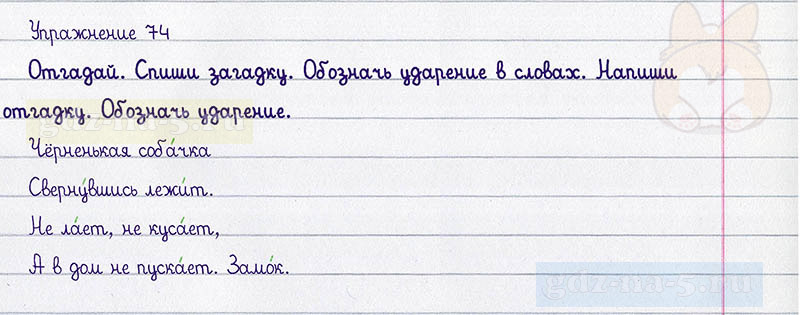 Упражнение 74
Отгадай. Спиши загадку. Обозначь ударение в словах. Напиши
отгадку. Обозначь ударение.
gdz-na-5.ru
Чёрненькая соба́чка
Сверну́вшись лежи́т.
Не ла́ет, не куса́ет,
А в дом не пуска́ет. Замо́к.
gdz-na-5.ru